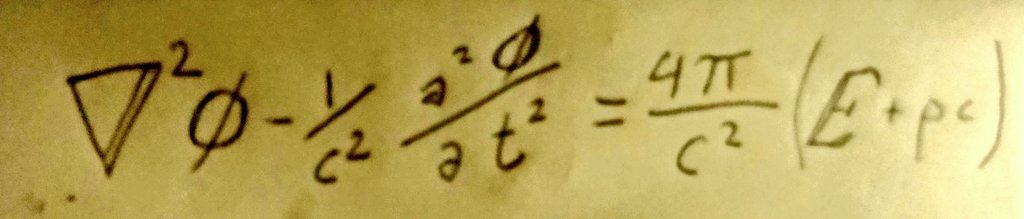 ∇²ϕ - 1/c² ∂²ϕ/∂t² = 4π/c² (E + pc)